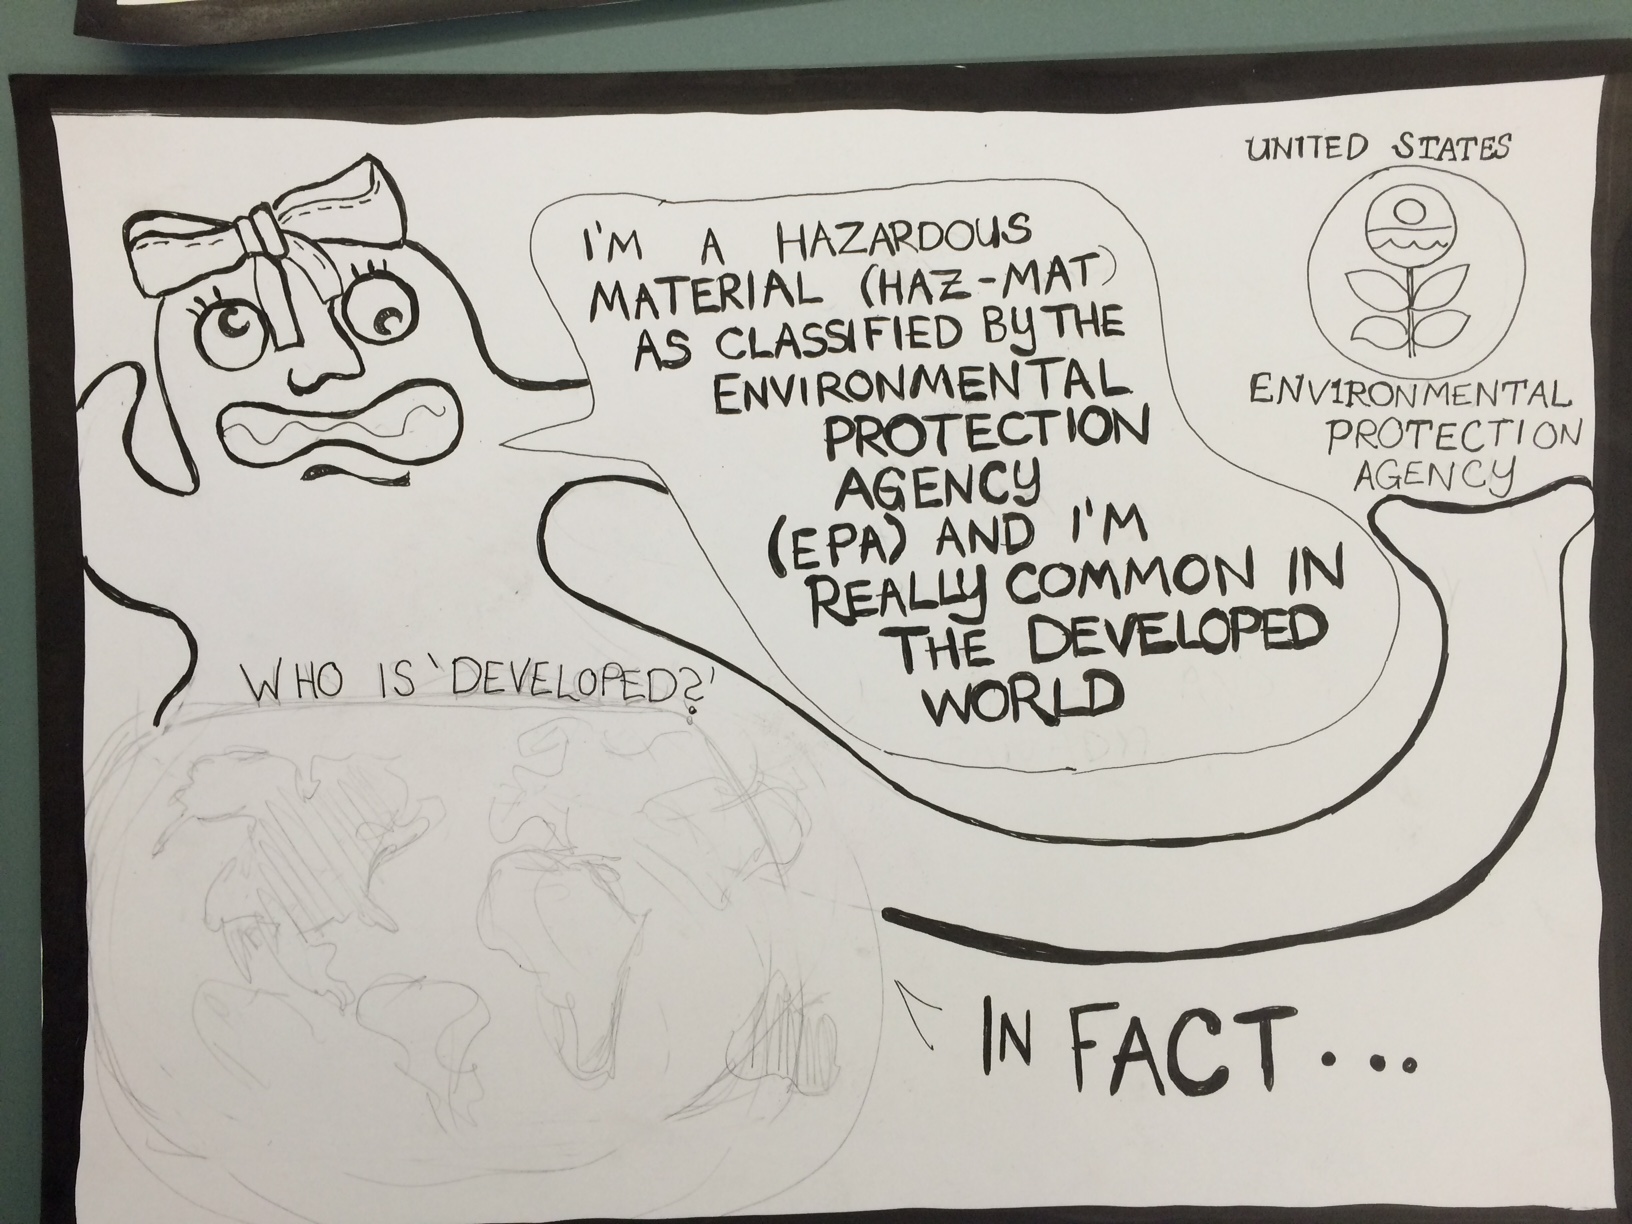 I'M A HAZARDOUS
MATERIAL (HAZ-MAT)
AS CLASSIFIED BY THE
ENVIRONMENTAL
PROTECTION
AGENCY
(EPA) AND I'M
REALLY COMMON IN
THE DEVELOPED
WORLD
UNITED STATES
ENVIRONMENTAL
PROTECTION
AGENCY
WHO IS 'DEVELOPED?'
IN FACT...